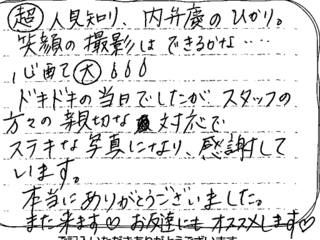 超人見知り、内弁慶のひかり。
笑顔の撮影はできるかな‥‥
心配で大
ドキドキの当日でしたが、スタッフの
方々の親切な対応で
ステキな写真になり、感謝して
います。
本当にありがとうございました。
また来ます♡ お友達にもオススメします♡
ご記入いただきありがとうございます